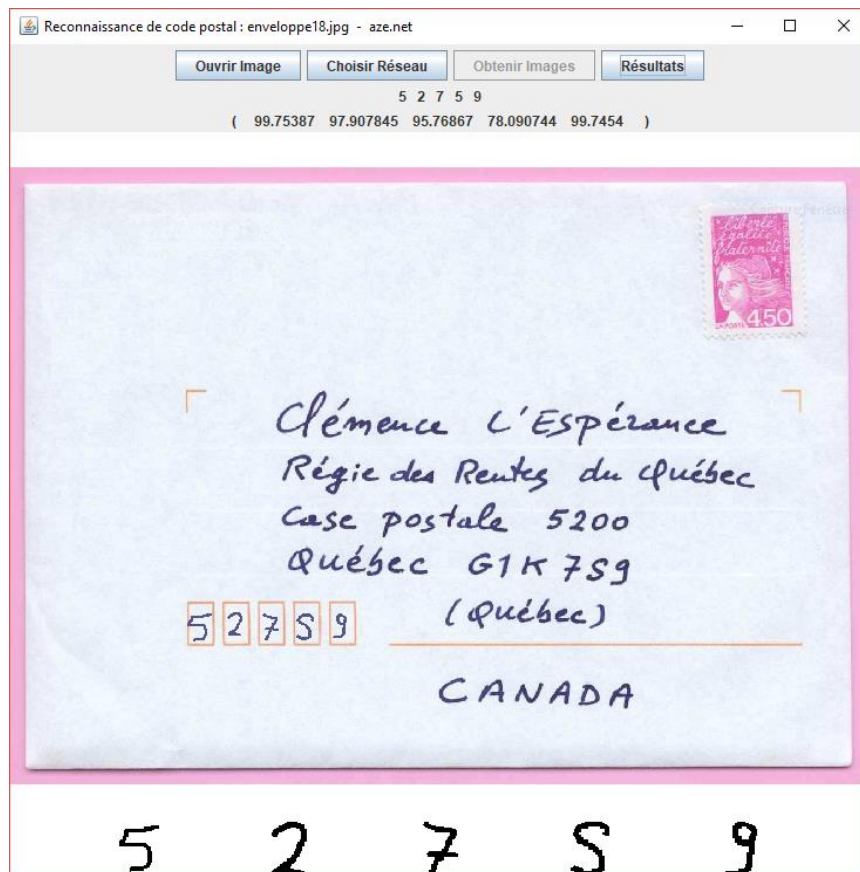 Reconnaissance de code postal : enveloppe18.jpg - aze.net
Ouvrir Image Choisir Réseau Obtenir Images Résultats
5 2 7 5 9
( 99.75387 97.907845 95.76867 78.090744 99.7454 )
Liberté
égalité
fraternité
LA POSTE 4,50
Clémence L'Espérance
Régie des Rentes du Québec
Case postale 5200
Québec G1K 7S9
(Québec)
5 2 7 5 9
CANADA
5 2 7 5 9